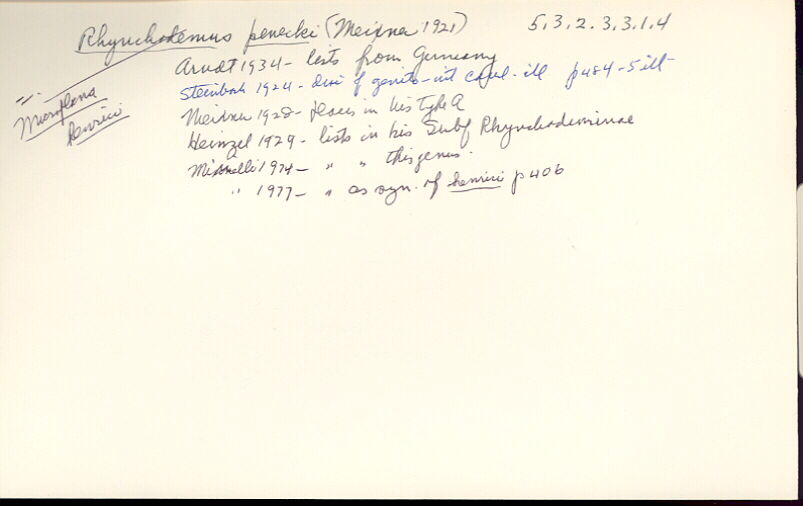 Rhynchodemus penecki (Meixner 1921) 5.3.2.3.3.1.4
Arndt 1934 - lists from Germany
Steinbock 1924 - disc of genito-int canal - ill p484 - 5 ill -
Meixner 1928 - places in his type A
Heinzel 1929 - lists in his Subf Rhynchodeminae
Minelli 1974 - " " this genus.
" 1977 - " as syn. of henrici p406
= Microplana
henrici